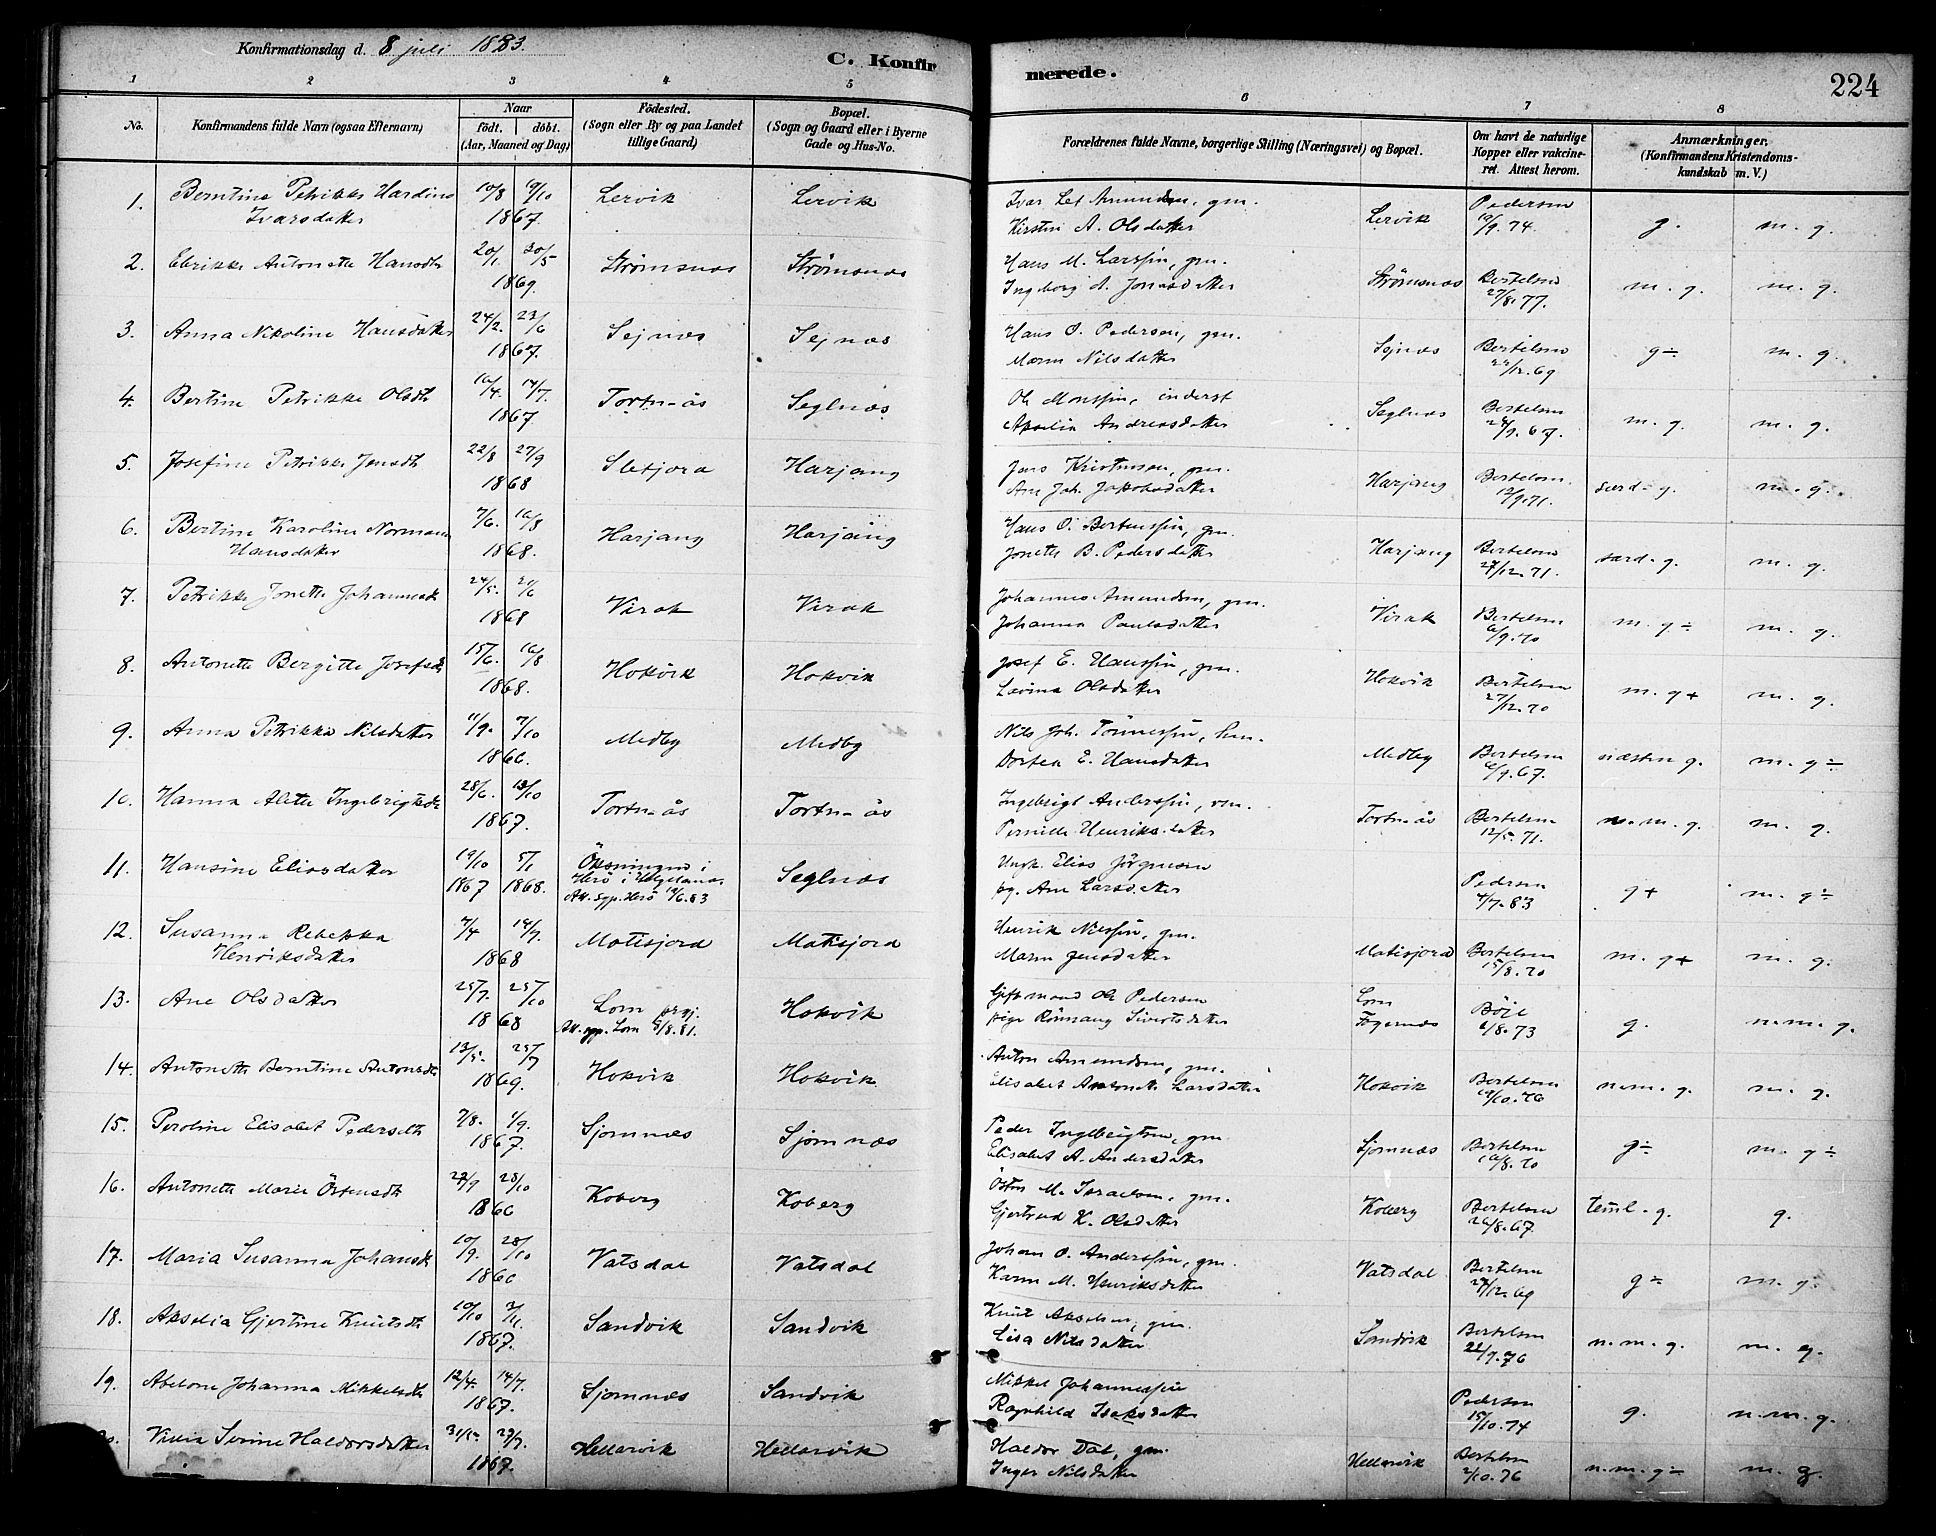 Konfirmationsdag d. 8 juli 1883.
C. Konfirmerede.
224
1 2 3 4 5 6 7 8
No.
Konfirmandens fulde Navn (ogsaa Efternavn)
Naar
födt. döbt.
(Aar, Maaned og Dag)
Födested.
(Sogn eller By og paa Landet
tillige Gaard)
Bopæl.
(Sogn og Gaard eller i Byerne
Gade og Hus-No.
Forældrenes fulde Navne, borgerlige Stilling (Næringsvei) og Bopæl.
Om havt de naturlige
Kopper eller vakcine-
ret. Attest herom.
Anmærkninger.
(Konfirmandens Kristendoms-
kundskab m. V.)
1. Berntine Petrikke Hardine 10/8 19/10 Lervik Lervik Ivar Amundsen, gm. Lervik Pedersen g. m. g.
Ivarsdatter 1867. Kirstin A. Olsdatter 19/9. 74.
2. Elrikke Antonette Hansdtr 20/1. 30/5 Strömsnæs Strömsnæs Hans M. Larssön, gm. Strömsnæs Bertelsen m. g. m. g.
1869. Ingeborg A. Jonasdatter 27/8. 77.
3. Anna Nikoline Hansdatter 24/2. 23/6 Sejnæs Sejnæs Hans O. Pedersen, gm. Sejnæs Bertelsen g ÷ m. g.
1867. Maren Nilsdatter 22/12. 69
4. Bertine Petrikke Olsdtr 16/4. 14/7. Tortn-ås Seglnæs Ole Monssön, inderst Seglnæs Bertelsen m. g. m. g.
1867. Akselia Andreasdatter 24/9. 67.
5. Josefine Petrikke Jensdtr 22/8 27/9 Sletjora Harjang Jens Kristensen, gm. Harjang Bertelsen særd. g. m. g.
1868 Ane Joh. Jakobsdatter 12/9. 71.
6. Bertine Karoline Normann 7/6. 16/8 Harjang Harjang Hans O. Berntssön, gm. Harjang Bertelsen særd. g. m. g.
Hansdatter 1868. Jonette B. Pedersdatter 27/12. 71.
7. Petrikke Jonette Johannesdtr 24/5. 21/6 Virak Virak Johannes Amundsen, gm. Virak Bertelsen m. g ÷ m. g.
1868 Johanna Paulsdatter 6/9. 70
8. Antonette Bergitte Josefsdtr 15/6. 16/8 Hokvik Hokvik Josef E. Hanssön, gm. Hokvik Bertelsen m. g + m. g.
1868. Lovina Olsdatter 27/12. 70
9. Anna Petrikka Nilsdatter 11/9. 7/10 Medby Medby Nils Joh. Tönnessön, Medby Bertelsen næsten g. m. g ÷
1866. Dortea E. Hansdatter 6/9. 67.
10. Hanna Alette Ingebrigtsdtr 28/6. 13/10 Tortn-ås Tortn-ås Ingebrigt Anderssön, Tortn-ås Bertelsen n. m. g. m. g.
1867. Pernille Henriksdatter 12/5. 71.
11. Hansine Eliasdatter 19/10 5/1 Öksningen i Seglnæs Ungk. Elias Jörgensen Pedersen g + m. g ÷
1867 1868. Herö i Helgeland. pg. Ane Larsdatter 4/7. 83
Att. sgp. Herö 19/6. 83
12. Susanna Rebekka 7/4 14/7. Matisjord Matisjord Henrik Nilssön, gm. Matisjord Bertelsen m. g + m. g.
Henriksdatter 1868 Maren Jensdatter 15/8. 70
13. Ane Olsdatter 25/7. 25/10 Lom prgj. Hokvik Gift mand Ole Pedersen Lom Böje g. n. m. g.
1868 Att. sgp. Lom 5/8. 81. pige Rönnaug Sivertsdatter 6/8. 73
14. Antonette Berntine Antonsdtr 13/5. 25/7 Hokvik Hokvik Anton Amundsen, gm. Hokvik Bertelsen n. m. g. m. g.
1869. Elisabet Larsdatter 19/10. 76
15. Peroline Elisabet Pedersdtr 7/8. 1/9. Sjomnæs Sjomnæs Peder Ingebrigtsen, gm. Sjomnæs Bertelsen g ÷ m. g ÷
1867. Elisabet A. Andersdatter 16/8. 70
16. Antonette Marie Östensdtr 28/10 Koberg Koberg Östen M. Israelsen, gm. Koberg Bertelsen temml. g. g.
1866 Gjertrud K. Olsdatter 26/8. 67
17. Maria Susanna Johansdtr 10/9. 28/10 Vatsdal Vatsdal Johan O. Anderssön, gm. Vatsdal Bertelsen g ÷ m. g.
1866 Karen M. Henriksdatter 27/12. 69
18. Akselia Gjertine Knutsdtr 10/10 3/11. Sandvik Sandvik Knut Akselsen, gm. Sandvik Bertelsen n. m. g. m. g.
1867. Lisa Nilsdatter 22/9. 76
19. Abelone Johanna Mikkelsdtr 12/4. 14/7. Sjomnæs Sandvik Mikkel Johannessön Pedersen g. n. m. g.
1867. Ragnhild Isaksdatter 15/10. 74
Haldorsdatter 27/7. Hellarvik Hellarvik Haldor Dal, gm. Hellarvik Bertelsen n. m. g ÷ m. g
1867. Inger Nilsdatter 2/10. 76